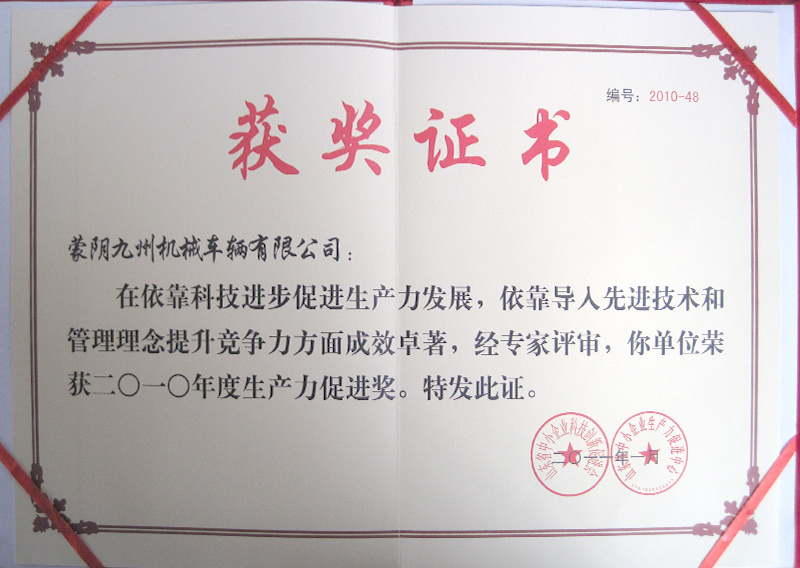 编号：2010-48
获奖证书
蒙阴九州机械车辆有限公司：
在依靠科技进步促进生产力发展，依靠导入先进技术和
管理理念提升竞争力方面成效卓著，经专家评审，你单位荣
获二〇一〇年度生产力促进奖。特发此证。
山东省中小企业科技创新促进会
山东省中小企业生产力促进中心
二〇一一年一月